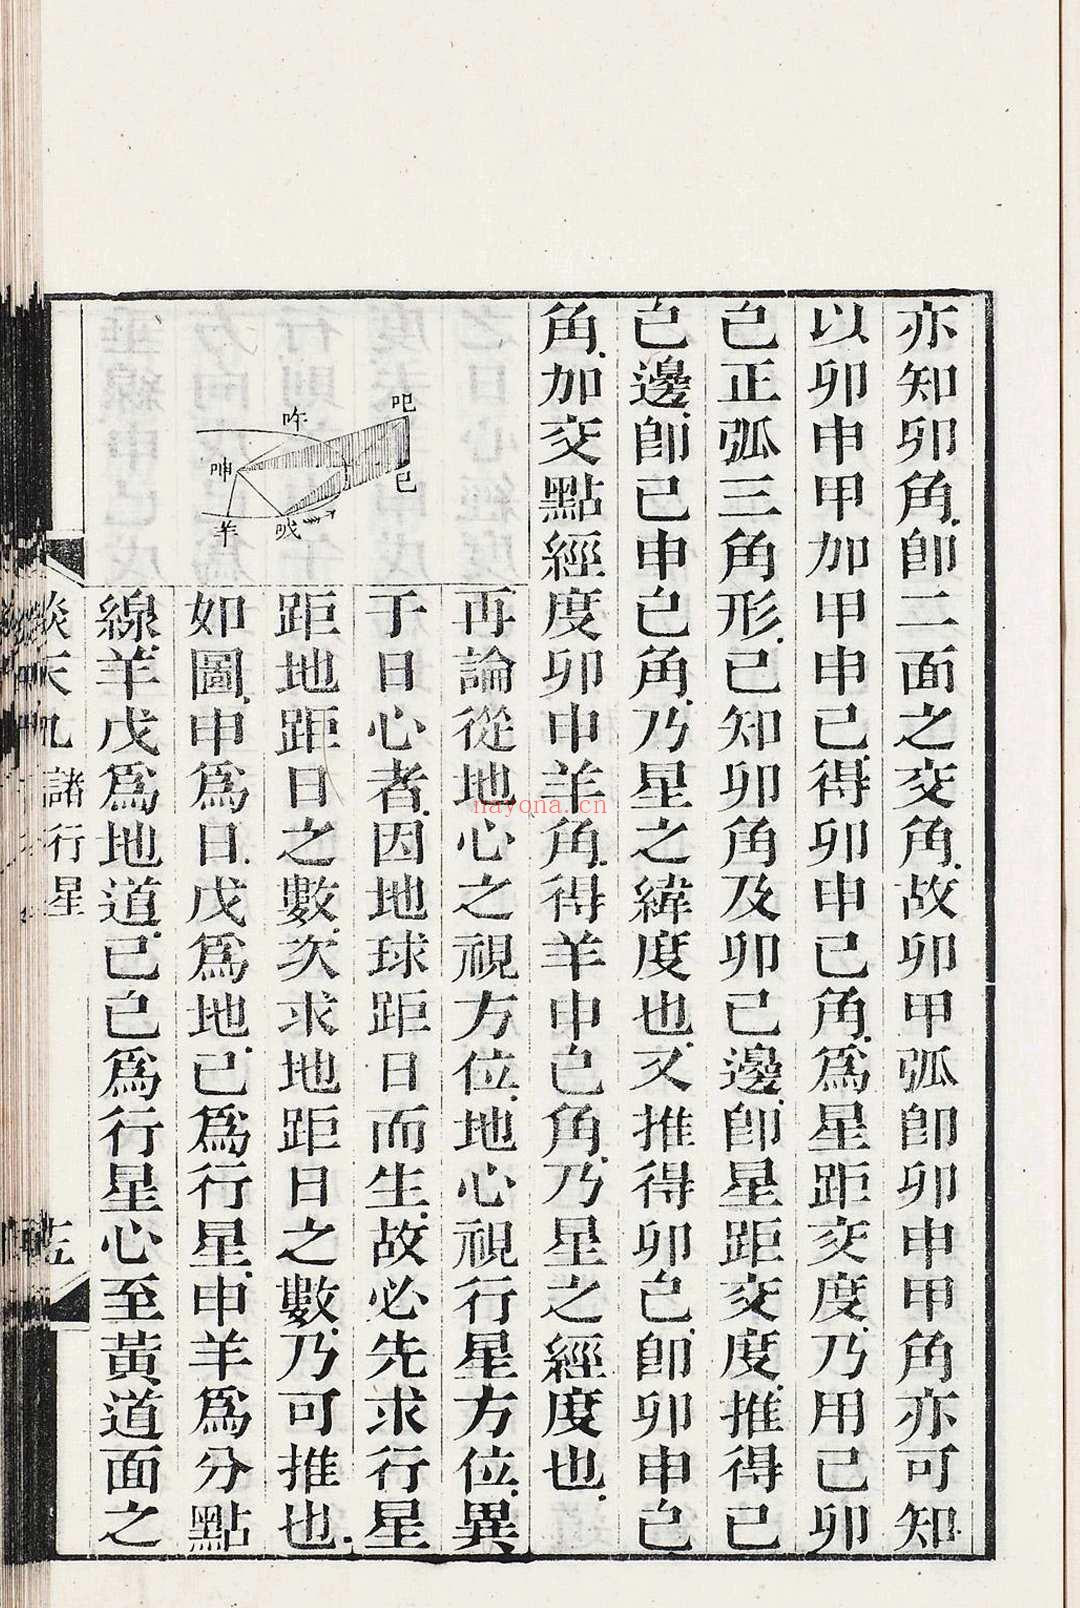 亦知卯角、卽二面之交角、故卯甲弧卽卯申甲角亦可知
以卯申甲加甲申己、得卯申己角、爲星距交度、乃用己卯
正弧三角形、已知卯角及卯己邊、卽星距交度、推得己
邊、卽己申角、乃星之緯度也、又推得卯卽卯申
角、加交點經度卯申羊角、得羊申角、乃星之經度也、
吘
呻
羊
再論從地心之視方位、地心視行星方位、異
于日心者、因地球距日而生、故必先求行星
距地距日之數、次求地距日之數、乃可推也、
如圖、申爲日、戊爲地、己爲行星、申羊爲分點
線、羊戊爲地道、己爲行星心至黃道面之
談天九 諸行星
nayona.cn